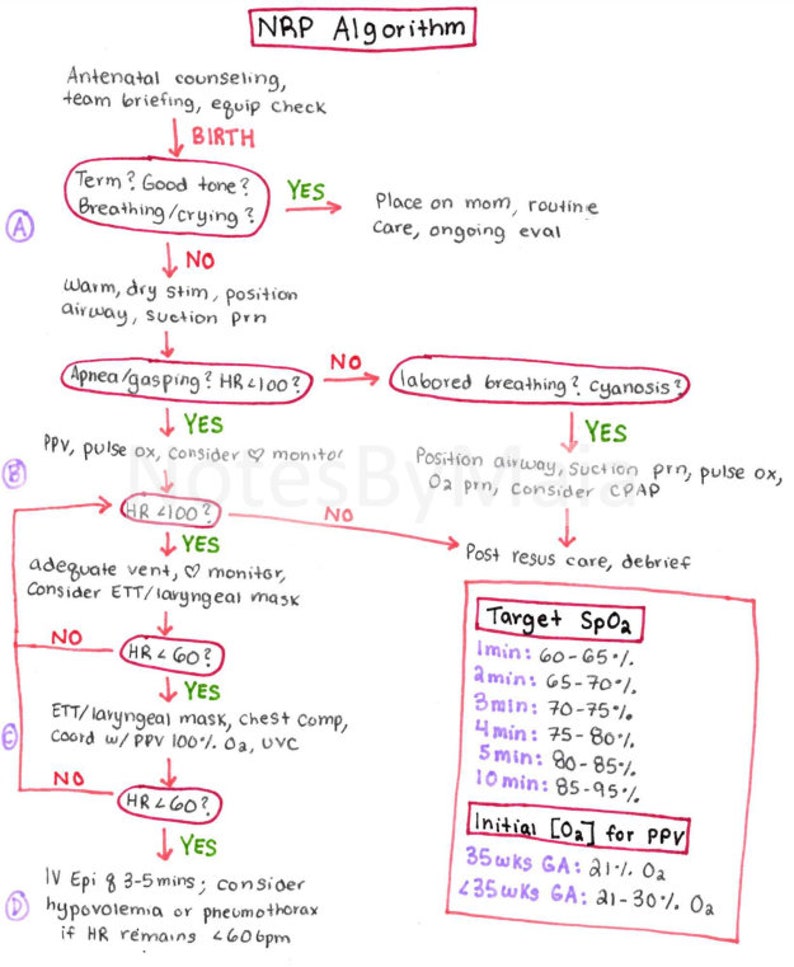 NRP Algorithm
Antenatal counseling,
team briefing, equip check
BIRTH
Term? Good tone?
Breathing/crying?
YES
Place on mom, routine
care, ongoing eval
A
NO
Warm, dry stim, position
airway, suction prn
Apnea/gasping? HR<100?
NO
labored breathing? Cyanosis?
YES
PPV, pulse ox, consider ♡ monitor
YES
Position airway, suction prn, pulse ox,
O2 prn, consider CPAP
B
NotesByMaia
HR <100?
NO
Post resus care, debrief
YES
adequate vent, ♡ monitor,
Consider ETT/laryngeal mask
HR < 60?
NO
YES
ETT/laryngeal mask, chest comp,
Coord w/ PPV 100% O2, UVC
C
HR < 60?
NO
YES
IV Epi q 3-5mins; consider
hypovolemia or pneumothorax
if HR remains <60bpm
D
Target SpO2
1min: 60-65%
2min: 65-70%
3min: 70-75%
4min: 75-80%
5min: 80-85%
10min: 85-95%
Initial [O2] for PPV
35wks GA: 21% O2
<35wks GA: 21-30% O2